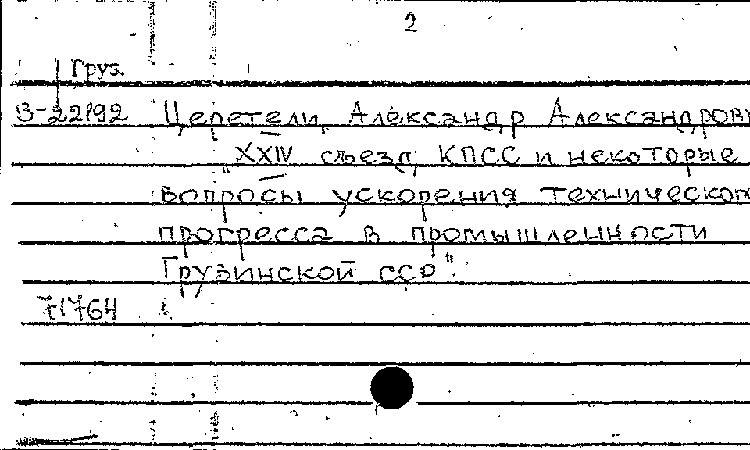 2
Груз.
В-22192 Церетели, Александр Александрови
"XXIV съезд КПСС и некоторые
вопросы ускорения техническог
прогресса в промышленности
Грузинской ССР".
71764